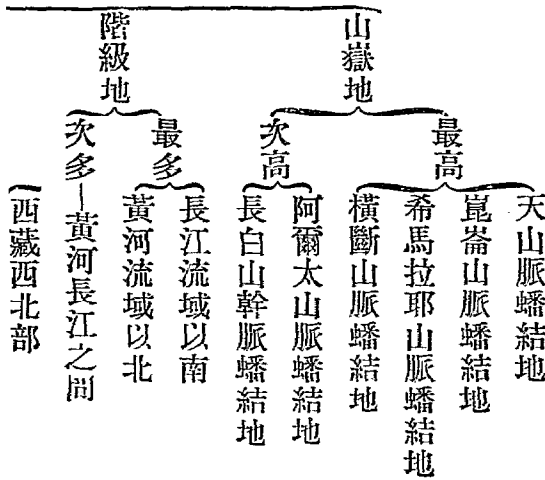 山嶽地
最高
天山脈蟠結地
崑崙山脈蟠結地
希馬拉耶山脈蟠結地
橫斷山脈蟠結地
次高
阿爾太山脈蟠結地
長白山幹脈蟠結地
階級地
最多
長江流域以南
黃河流域以北
次多—黃河長江之間
西藏西北部